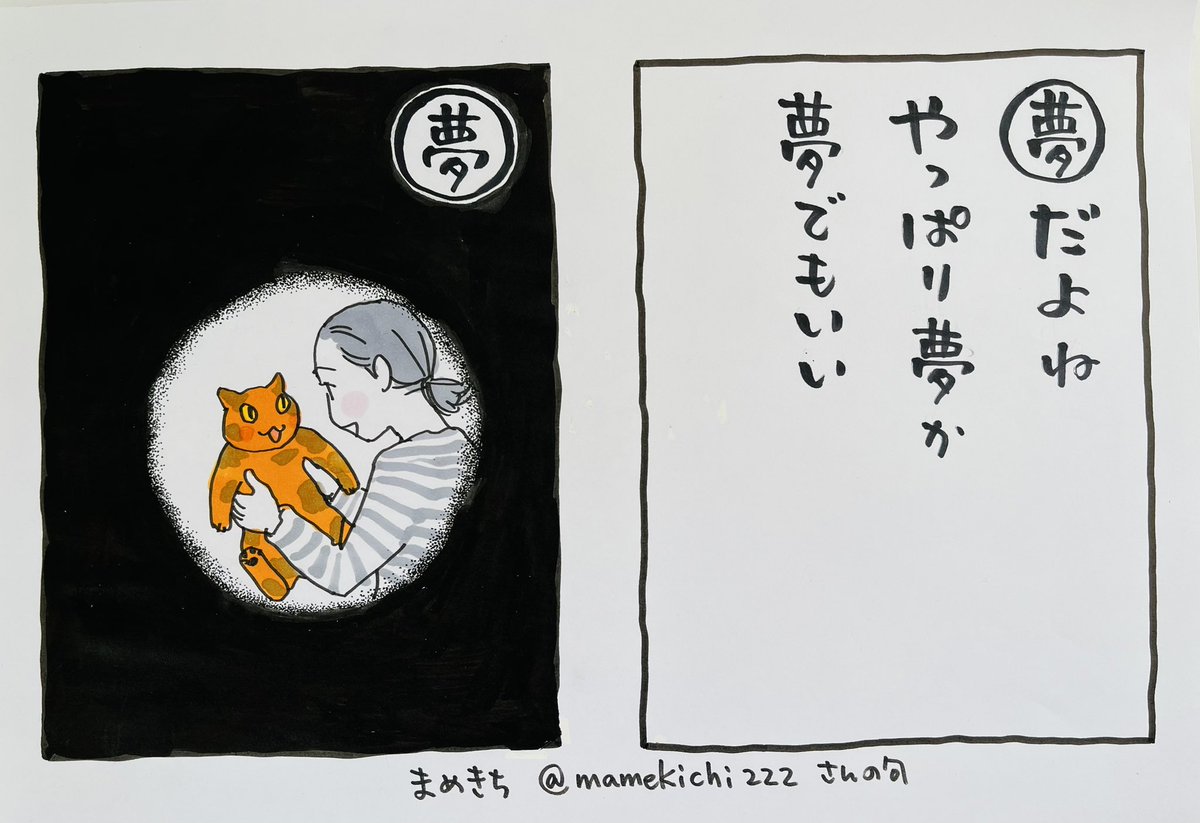 夢
夢だよね
やっぱり夢か
夢でもいい
まめきち @mamekichi222 さんの句